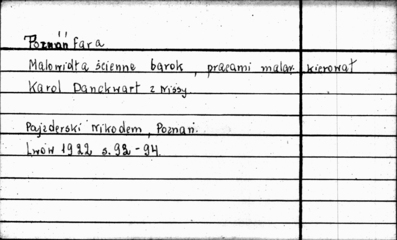 Poznań fara
Malowidła ścienne barok, pracami malar. kierował
Karol Danckwart z Nissy.
Pajzderski Nikodem, Poznań.
Lwów 1922 s. 92-94.